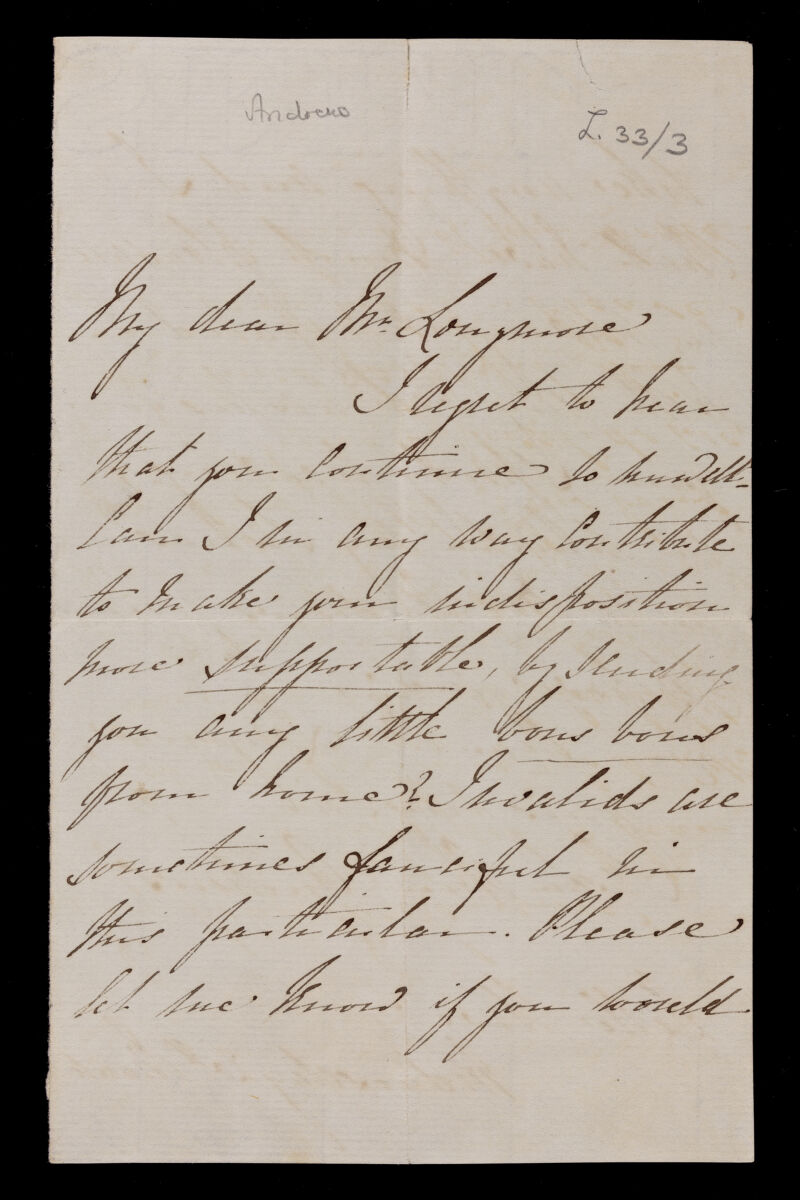 Andrews
L. 33/3
My dear Mr. Longmore
I regret to hear
that you continue so unwell-
Can I in any way contribute
to make your indisposition
more supportable, by sending
you any little bons bons
from home? Invalids are
sometimes fanciful in
this particular. Please
let me know if you would